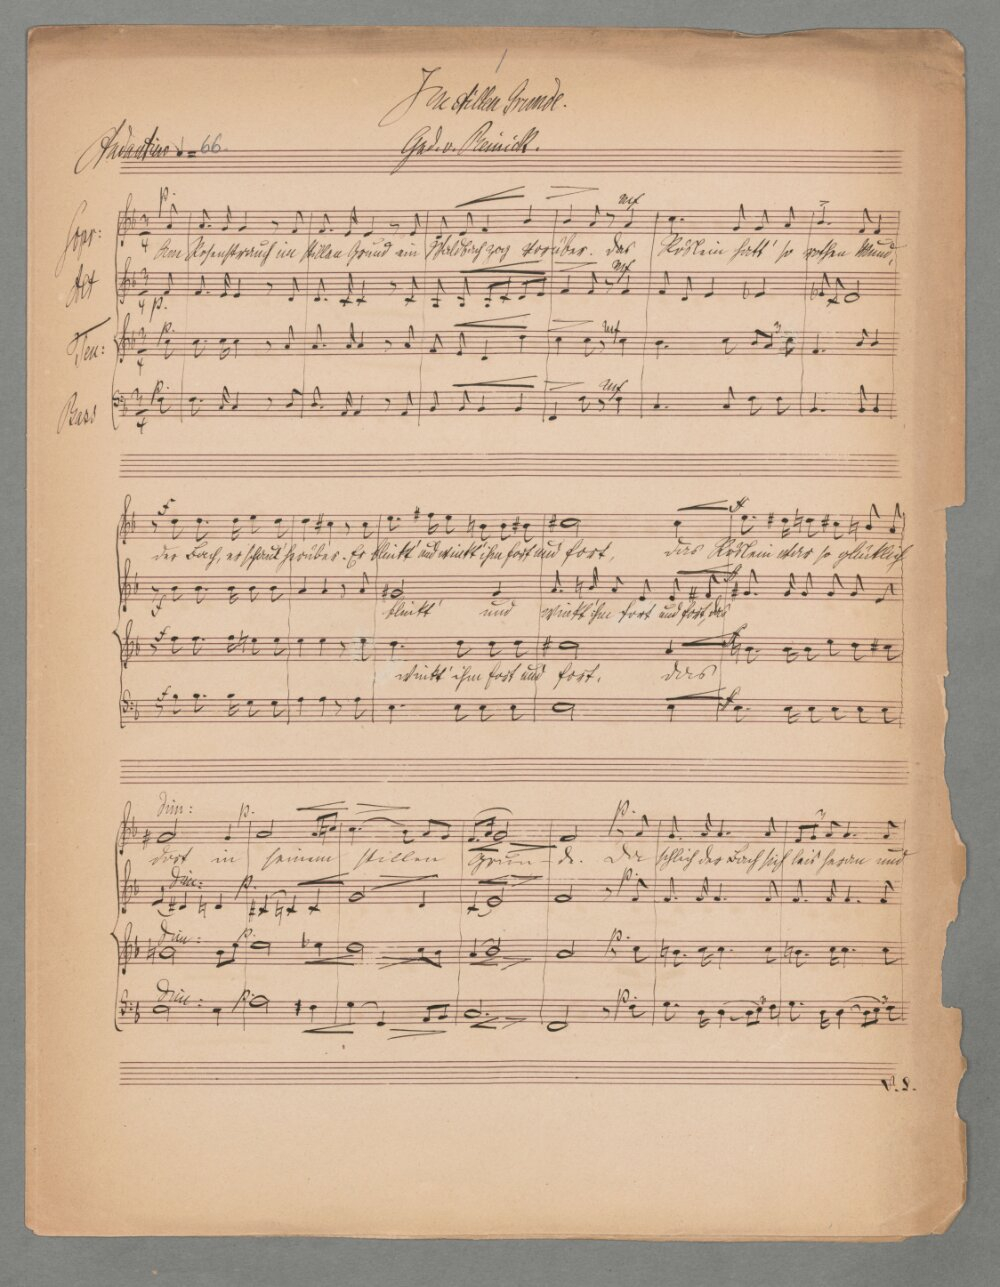 Im stillen Grunde.
Ged. v. Reinick.
Andantino ♩ = 66.
p.
mf
Sopr:
Am Rosenstrauch im stillen Grund ein Waldbach zog vorüber. das Röslein hatt' so rothen Mund,
mf
Alt
p.
Ten:
p.
mf
Bass
p.
mf
f
f
der Bach, er schaut' herüber. Er blinkt' und winkt' ihm fort und fort, das Röslein war so glücklich
f
f
blinkt' und winkt' ihm fort und fort, das
f
f
winkt' ihm fort und fort, das
f
f
dim: p. p.
dort in seinem stillen Grun-de. Da schlich der Bach sich leis heran und
dim: p. p.
dim: p. p.
dim: p. p.
V. S.